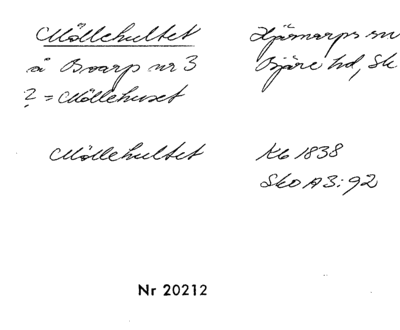 Möllehultet Hjärnarps sn
å Boarp nr 3 Bjäre hd, Sk
? = Möllehuset
Möllehultet Kb 1838
SkO A3:92
Nr 20212